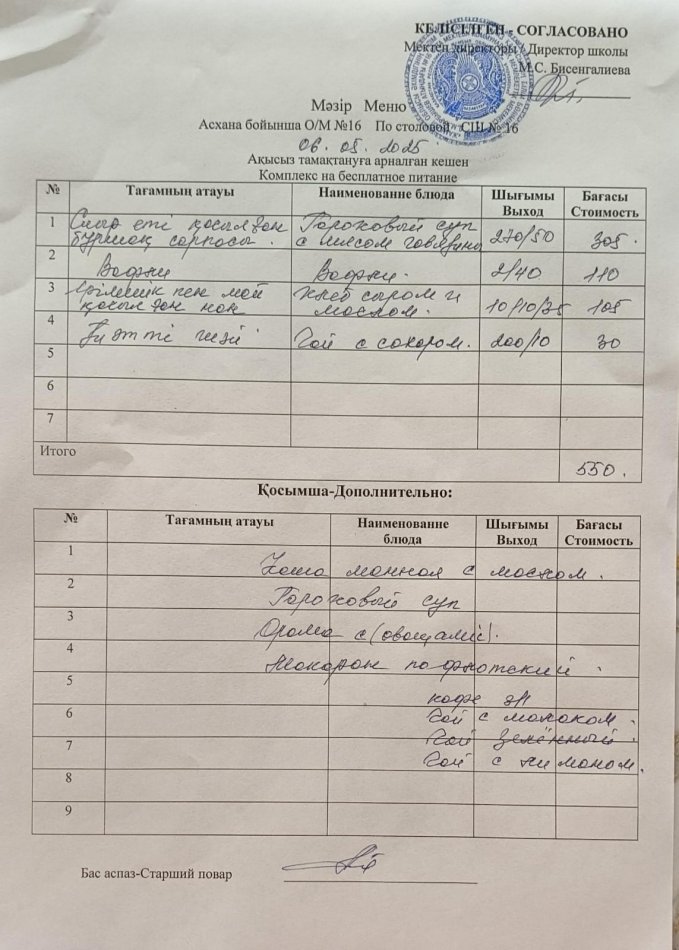 КЕЛІСІЛГЕН - СОГЛАСОВАНО
Мектеп директоры / Директор школы
М.С. Бисенгалиева
Мәзір Меню
Асхана бойынша О/М №16 По столовой СШ № 16
06. 05. 2025
Ақысыз тамақтануға арналған кешен
Комплекс на бесплатное питание
№ Тағамның атауы Наименование блюда Шығымы Выход Бағасы Стоимость
1 Сиыр еті қосылған бұршақ сорпасы. Гороховый суп с мясом говядины 270/50 305.
2 Вафли Вафли. 2/40 110
3 Ірімшік пен май қосылған нан Хлеб сыром и маслом. 10/10/25 105
4 Тәтті шәй Чай с сахаром. 200/10 30
5
6
7
Итого 550.
Қосымша-Дополнительно:
№ Тағамның атауы Наименование блюда Шығымы Выход Бағасы Стоимость
1 Каша манная с маслом.
2 Гороховый суп
3 Орама с (овощами).
4 Макарон по флотский.
5 кофе 3/1
6 Чай с молоком.
7 Чай зелённый.
Чай с лимоном.
8
9
Бас аспаз-Старший повар